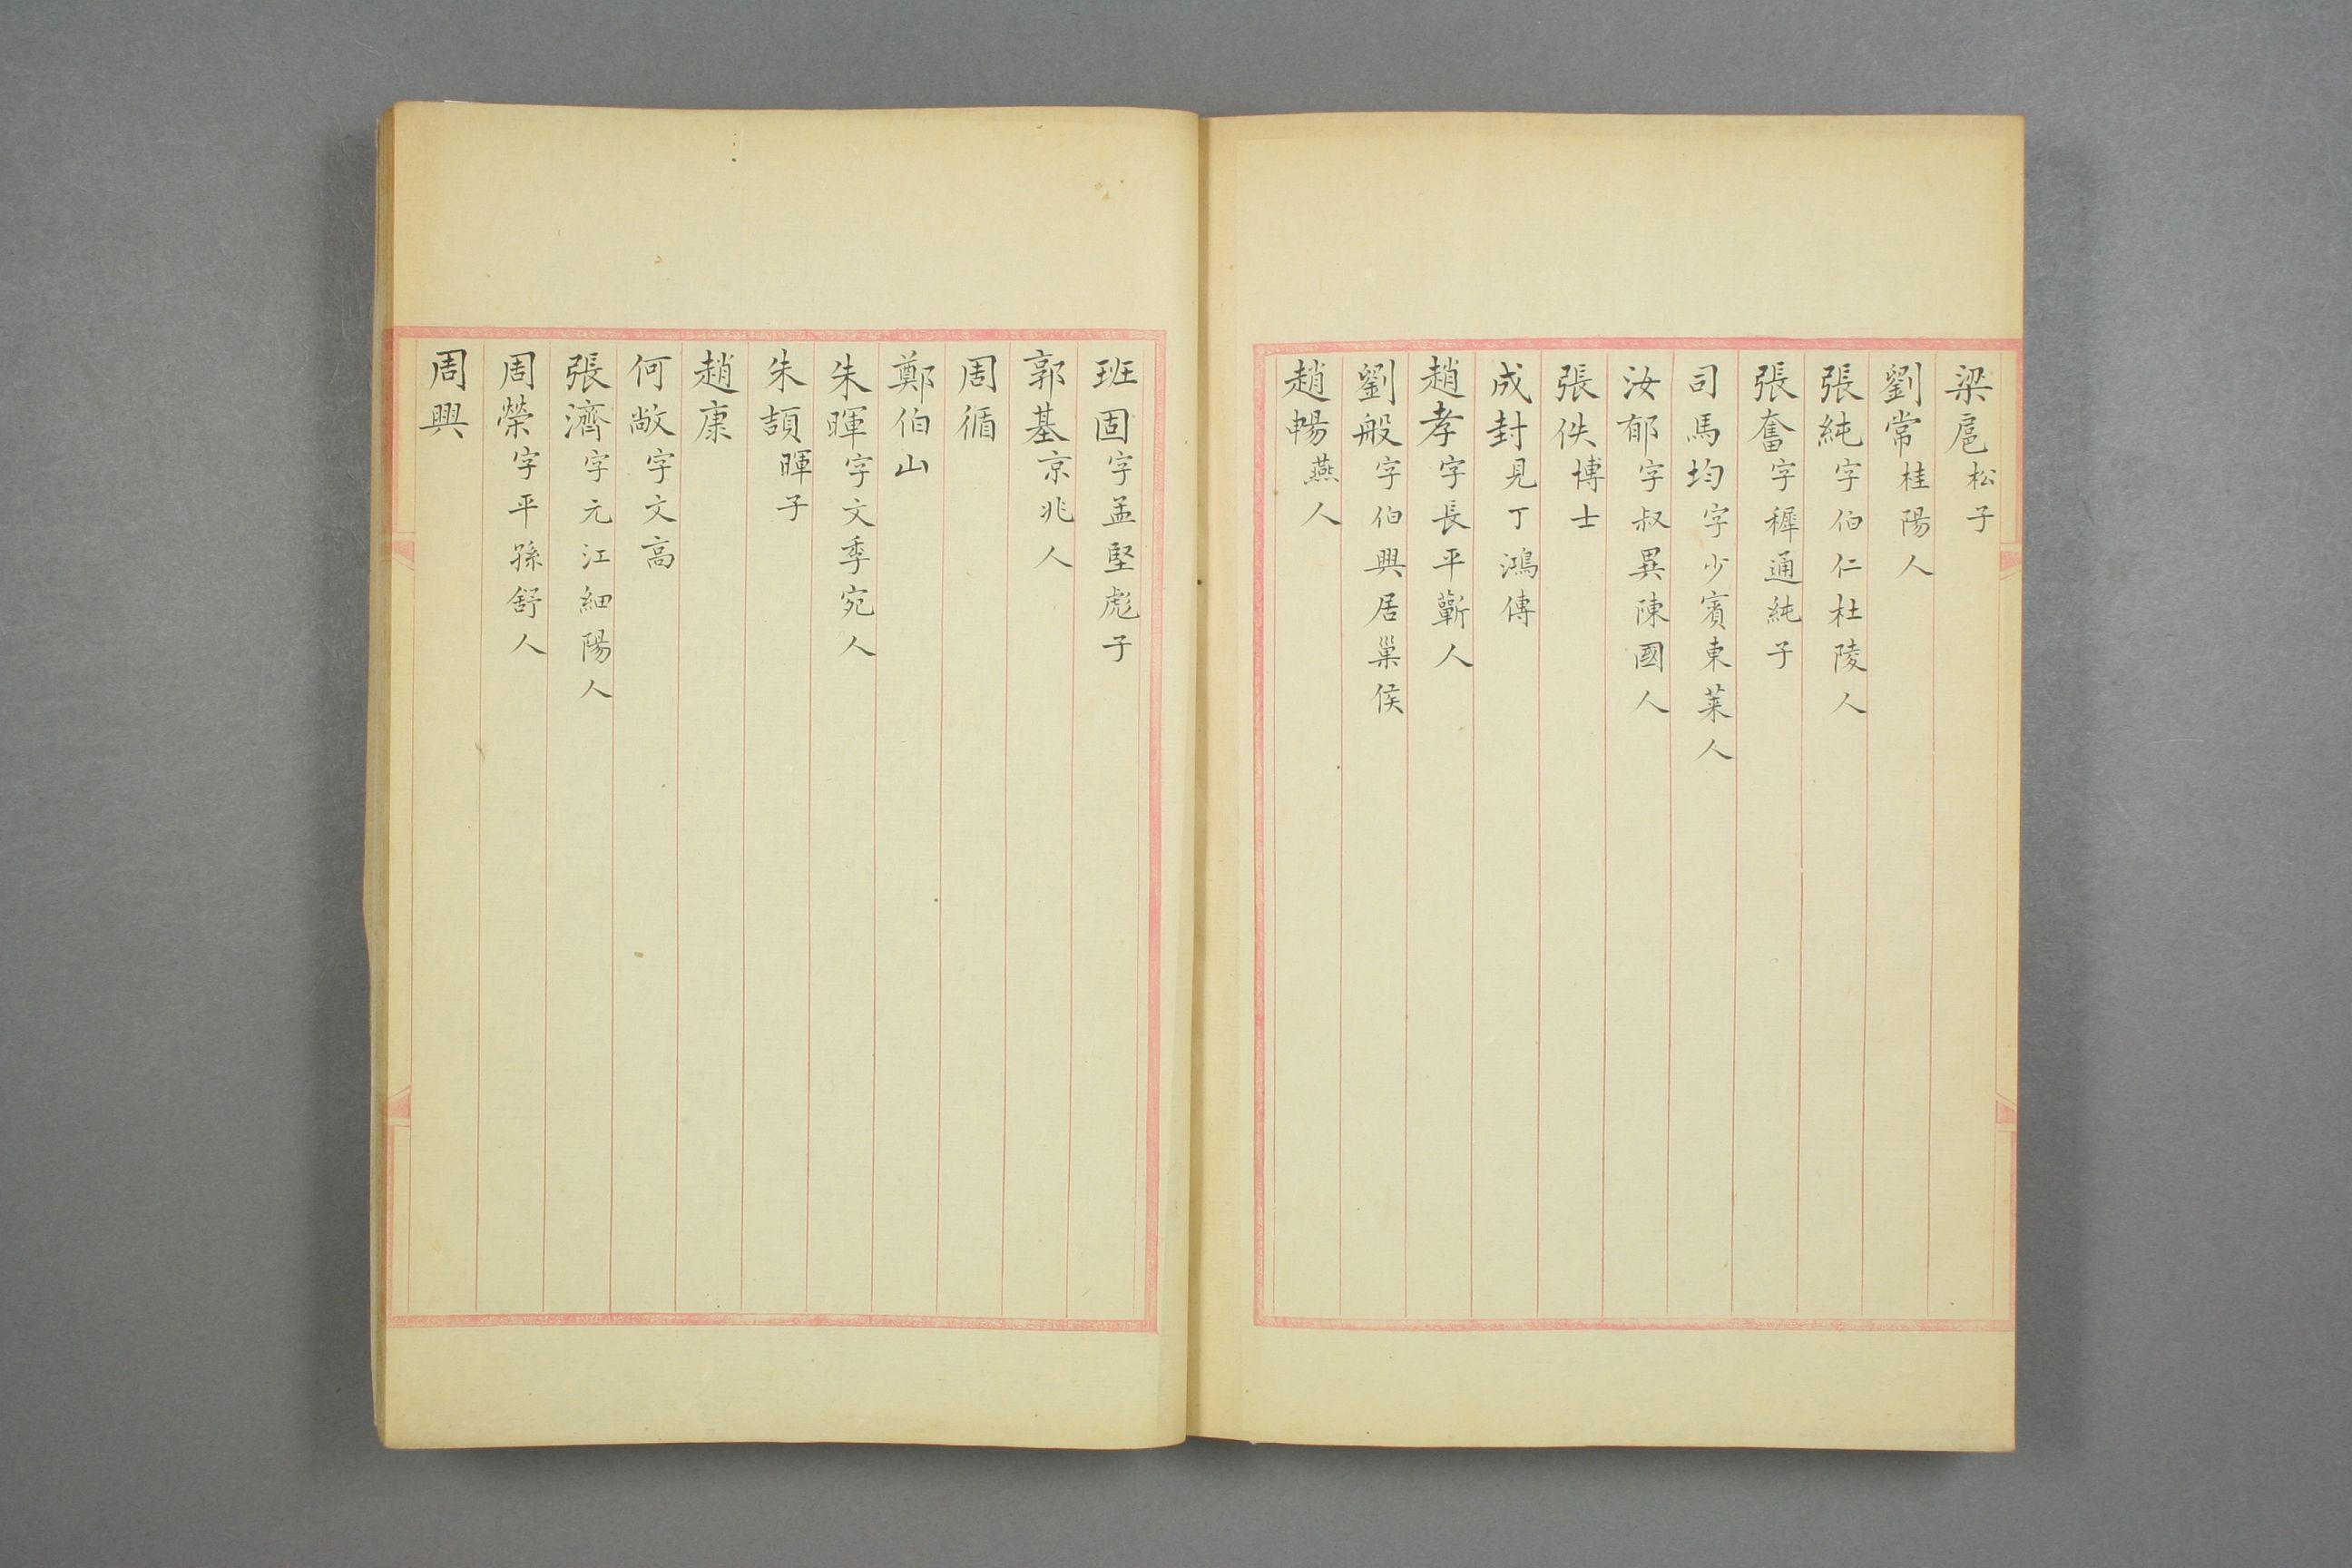 梁扈松子
劉常桂陽人
張純字伯仁杜陵人
張奮字穉通純子
司馬均字少賓東萊人
汝郁字叔異陳國人
張佚博士
成封見丁鴻傳
趙孝字長平蘄人
劉般字伯興居巢侯
趙暢燕人
班固字孟堅彪子
郭基京兆人
周循
鄭伯山
朱暉字文季宛人
朱頡暉子
趙康
何敞字文高
張濟字元江細陽人
周榮字平孫舒人
周興